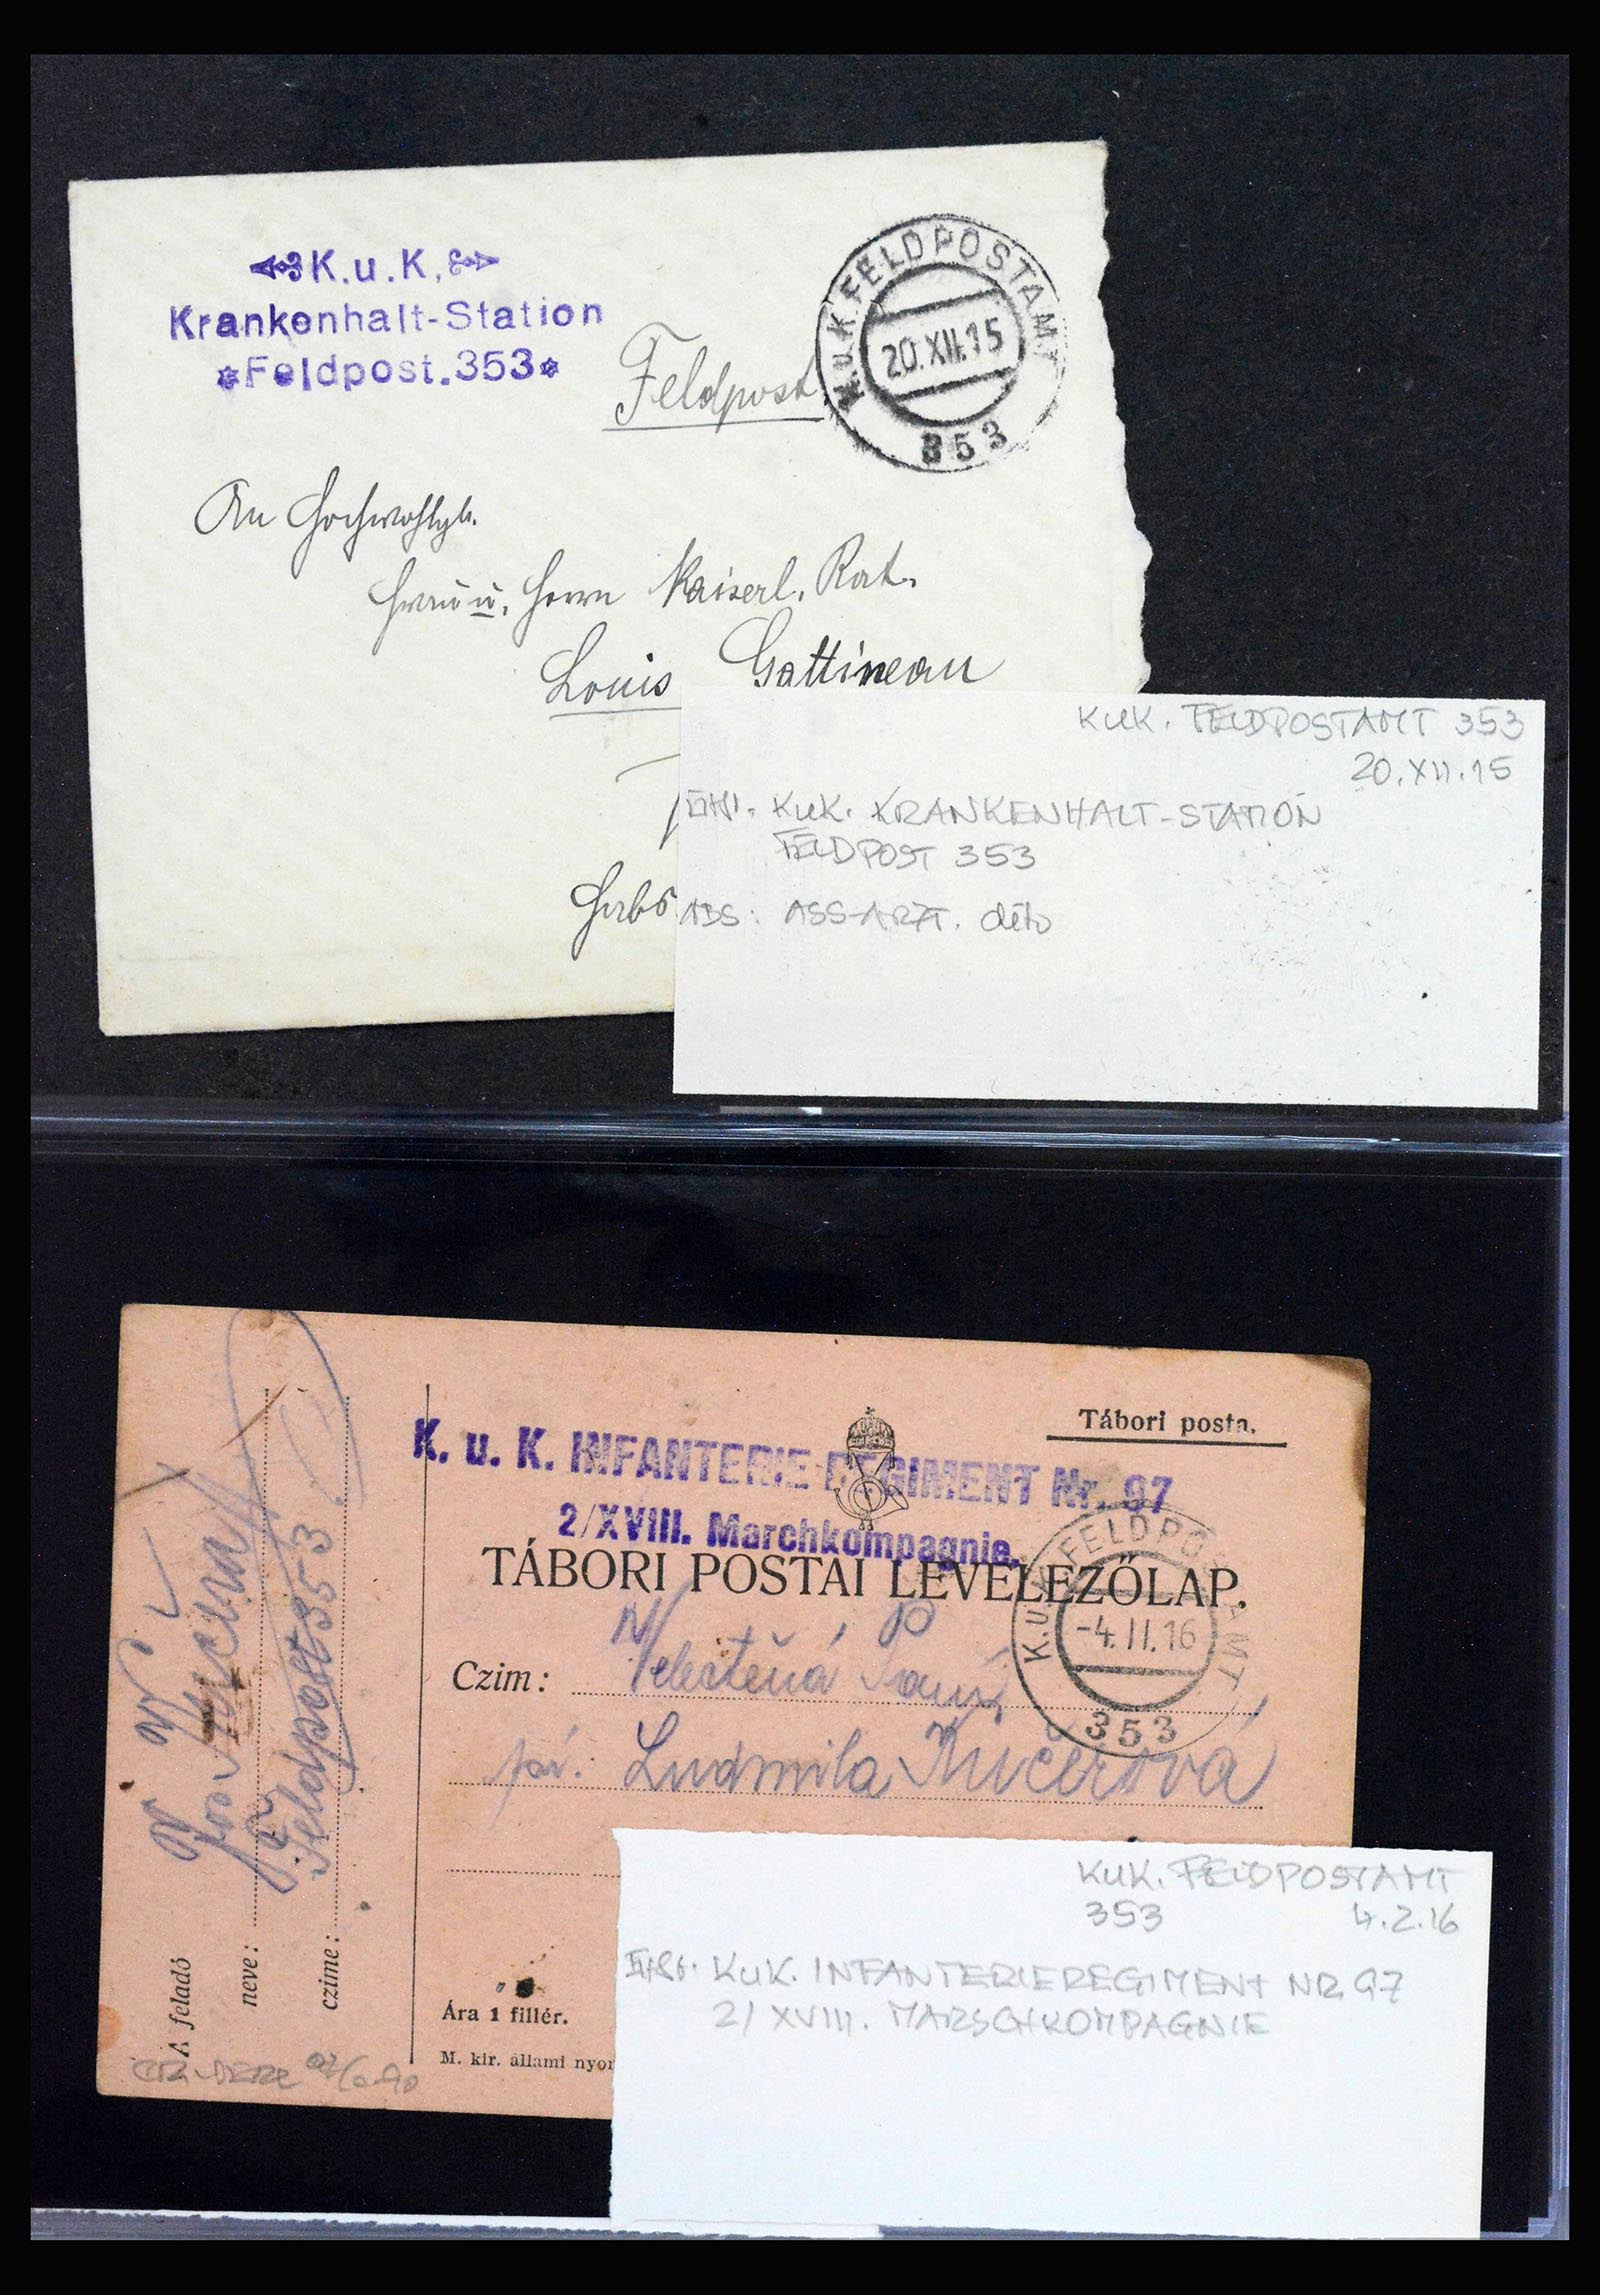 K.u.K.
Krankenhalt-Station
*Feldpost.353*
K.u.K. FELDPOSTAMT
20.XII.15
353
Feldpost
An Hochwohlgb.
Frau u. Herrn Kaiserl. Rat.
Louis Gattineau
KUK. FELDPOSTAMT 353
20.XII.15
KUK. KRANKENHALT-STATION
FELDPOST 353
ABS: ASS-ARZT. dēto
Tábori posta.
K. u. K. INFANTERIE-REGIMENT Nr. 97
2/XVIII. Marchkompagnie.
TÁBORI POSTAI LEVELEZŐLAP.
K.u.K. FELDPOSTAMT
-4.II.16
353
Czim: Velectěná Paní
Ludmila Kučerová
Feldpost 353
A feladó
neve:
czime:
Ára 1 fillér.
M. kir. állami nyom
KUK. FELDPOSTAMT
353 4.2.16
KUK. INFANTERIEREGIMENT NR. 97
2/XVIII. MARSCHKOMPAGNIE